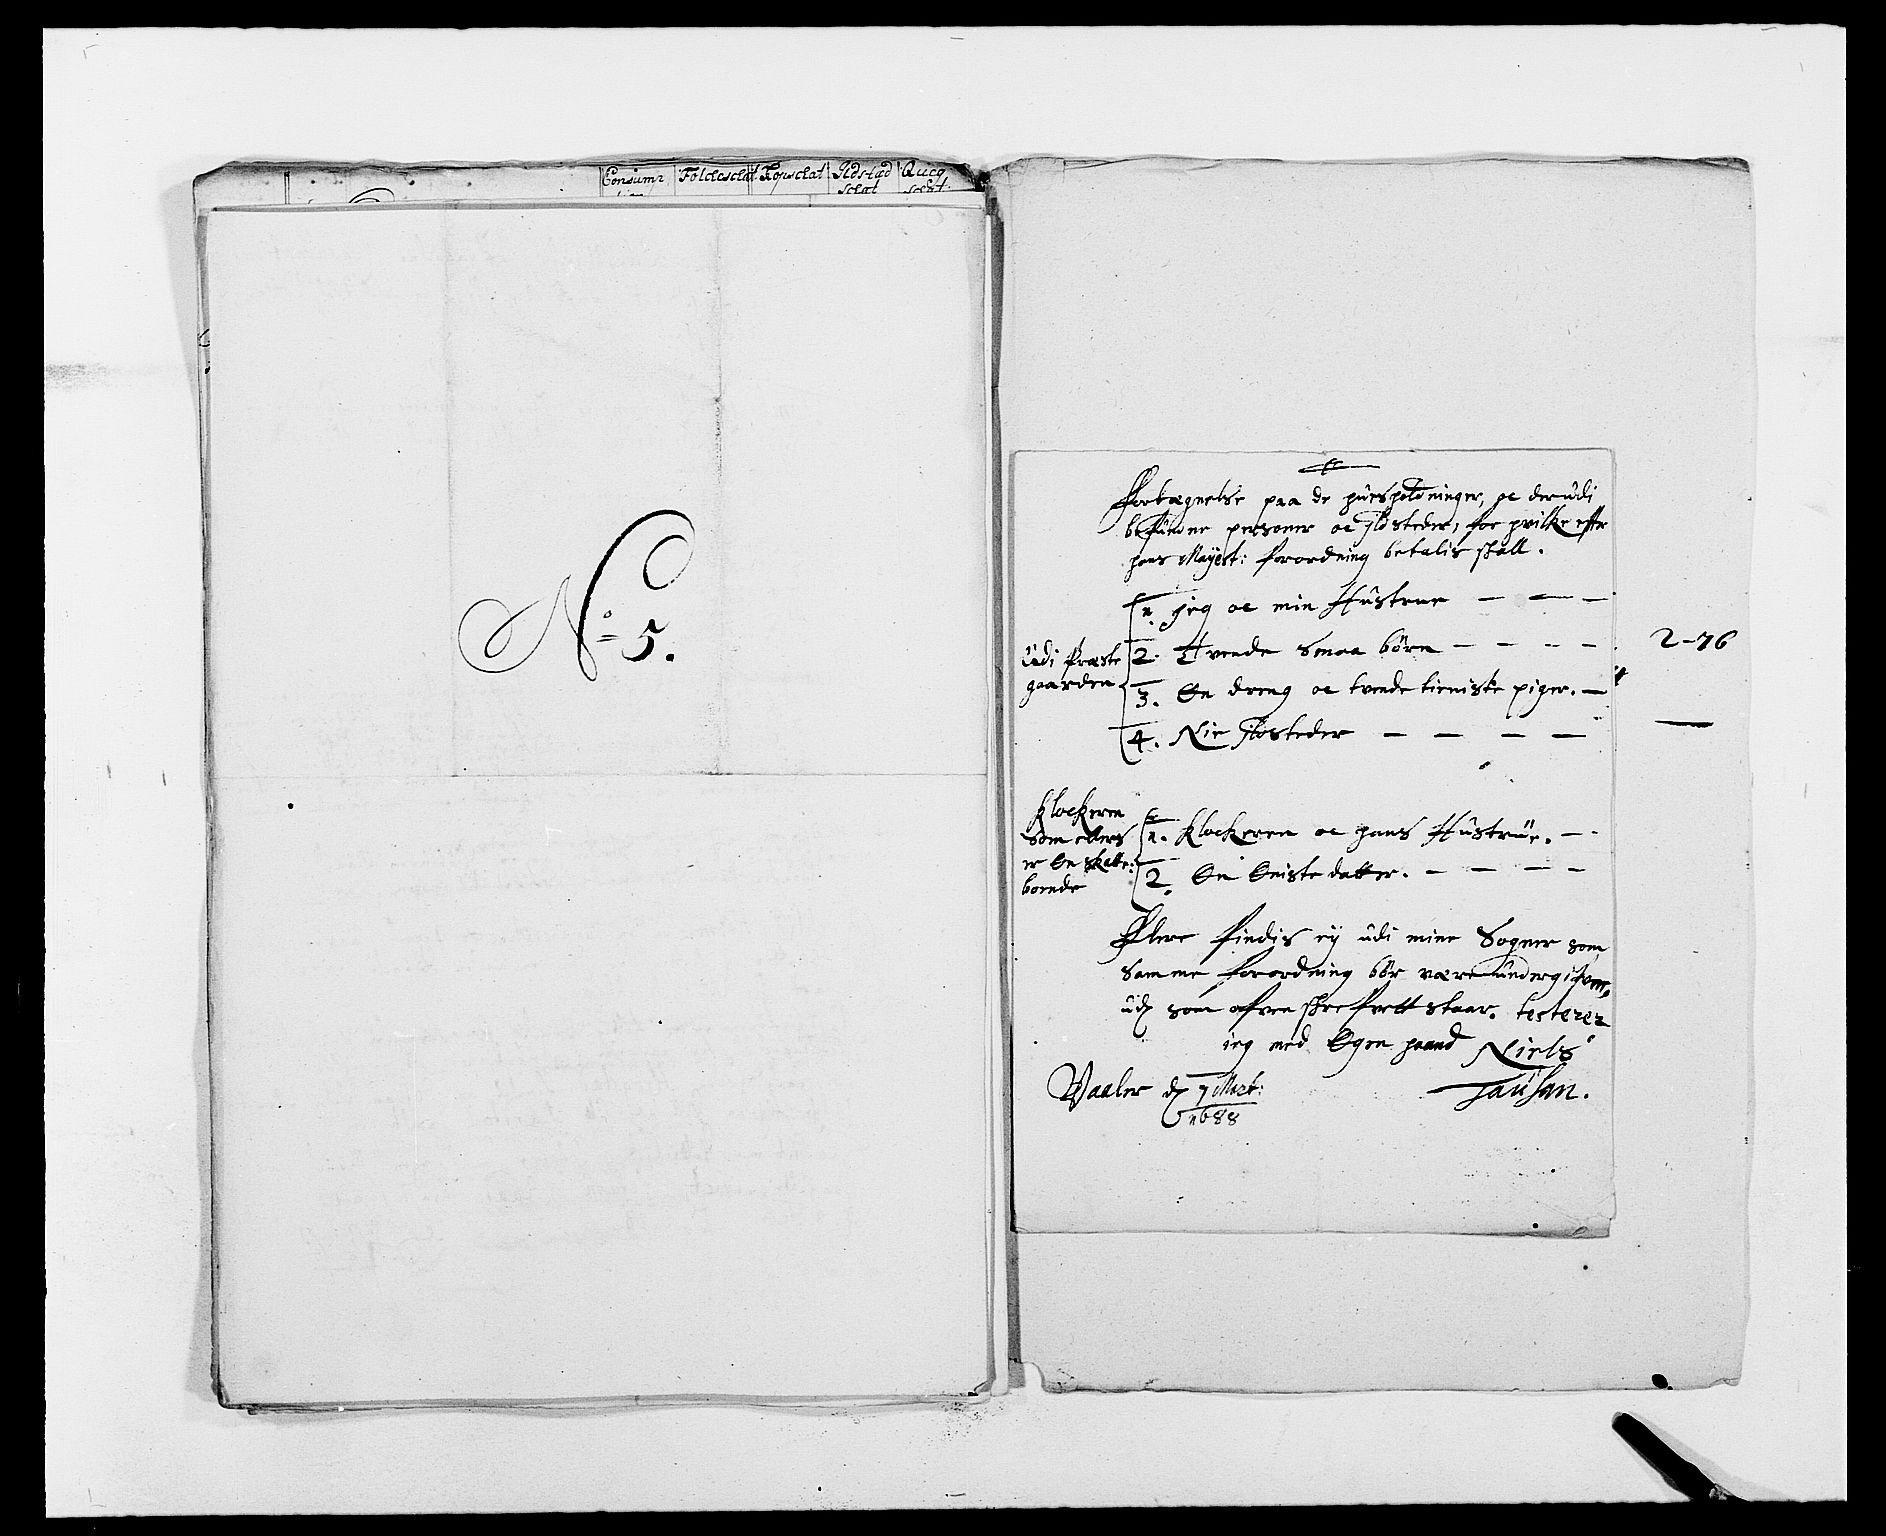 Consump
Folckeschat Kopschat Ildstad
schat
Qucg
schat
No 5.
Fortægnelse paa de huusholdninger, oc derudi
befundne personer oc Ildsteder, for hvilke efter
hans Mayest: forordning betalis skall.
Udi Præste
gaarden
1. Jeg oc min Hustrue
2. Tvende smaa börn
3. En dreng oc tvende tieniste piger.
4. Nie Ildsteder
2-76
Klockeren
som ellers
er En skatte:
bonde
1. Klockeren oc hans Hustrüe.
2. En Eniste datter.
Flere findis ej udi mine Sogner som
samme forordning bör være undergifven,
ud som ofven skrefvett staar. testerer
ieg med Egen haand Niels
Tausan.
Vaaler d 7 Mart:
1688